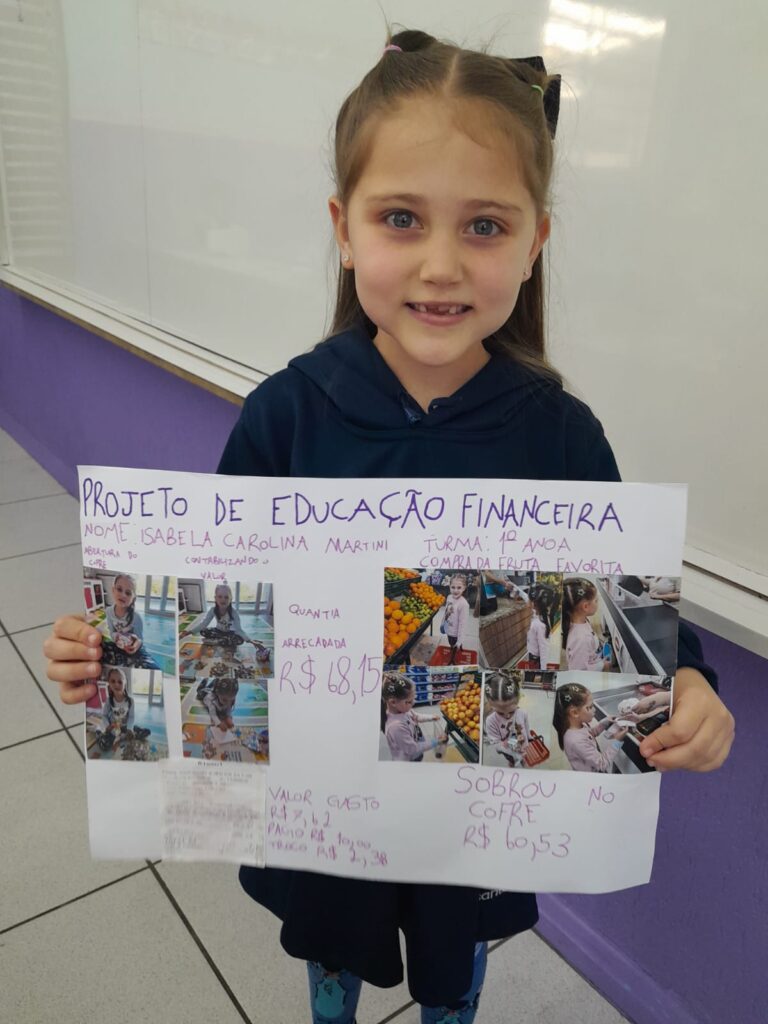 PROJETO DE EDUCAÇÃO FINANCEIRA
NOME: ISABELA CAROLINA MARTINI TURMA: 1º ANOA
ABERTURA DO COFRE
CONTABILIZANDO O VALOR
COMPRA DA FRUTA FAVORITA
QUANTIA
ARRECADADA
R$ 68,15
VALOR GASTO
R$ 7,62
PAGIO R$ 10,00
TROCO R$ 2,38
SOBROU NO
COFRE
R$ 60,53